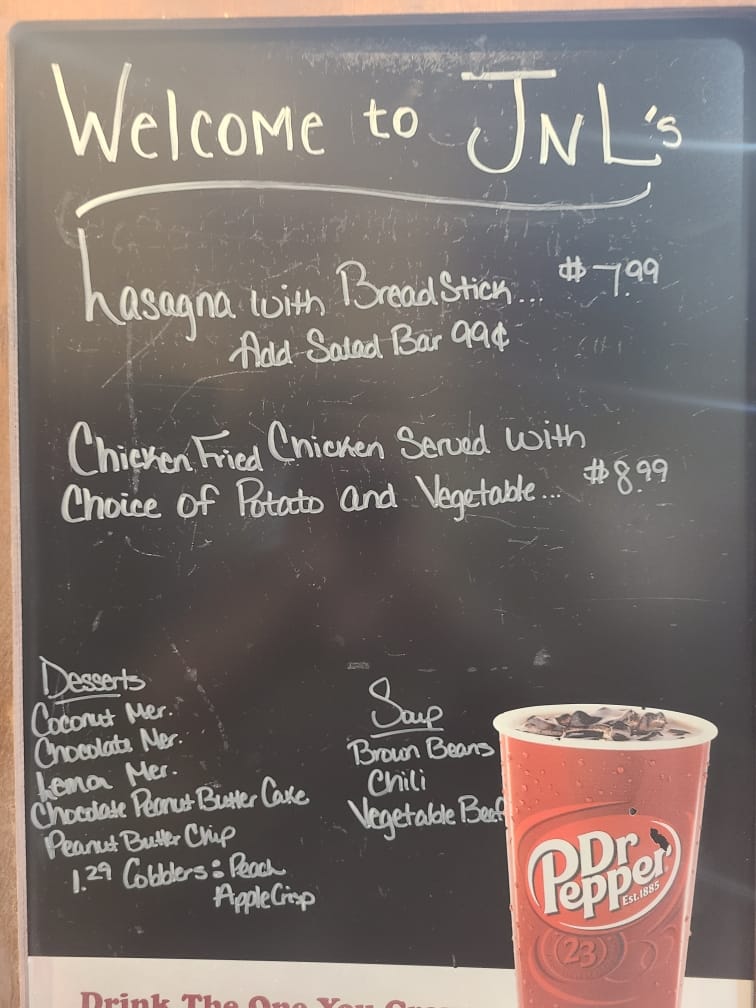 Welcome to JNL's
Lasagna with BreadStick... $7.99
Add Salad Bar 99¢
Chicken Fried Chicken Served with
Choice of Potato and Vegetable... $8.99
Desserts
Coconut Mer.
Chocolate Mer.
Lemon Mer.
Chocolate Peanut Butter Cake
Peanut Butter Chip
1.29 Cobblers: Peach
Apple Crisp
Soup
Brown Beans
Chili
Vegetable Beef
Dr
Pepper
Est. 1885
23
Drink The One You